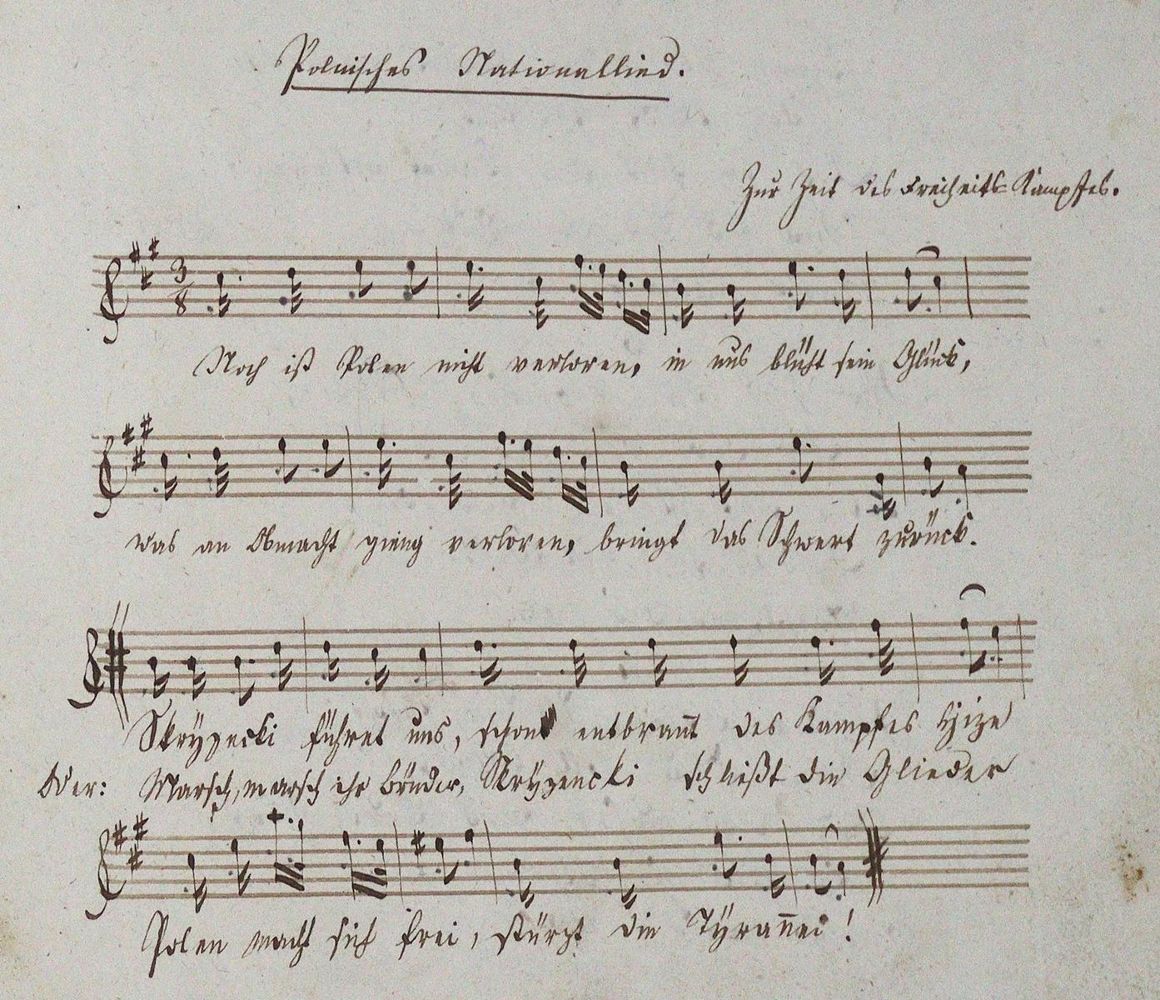 Polnisches Nationallied.
Zur Zeit des Freiheits=Kampfes.
3
8
Noch ist Polen nicht verloren, in uns blüht sein Glück,
was an Obmacht gieng verloren, bringt das Schwert zurück.
Skrÿzecki führet uns, schon entbrañt des Kampfes Hize
Oder: Marsch, marsch ihr Brüder, Skrÿzencki schließt die Glieder
Polen macht sich frei, stürzt die Tÿrañei!